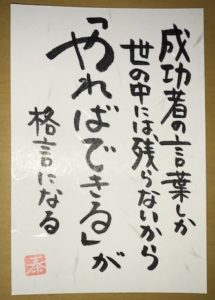 成功者の言葉しか
世の中には残らないから
「やればできる」が
格言になる
泰